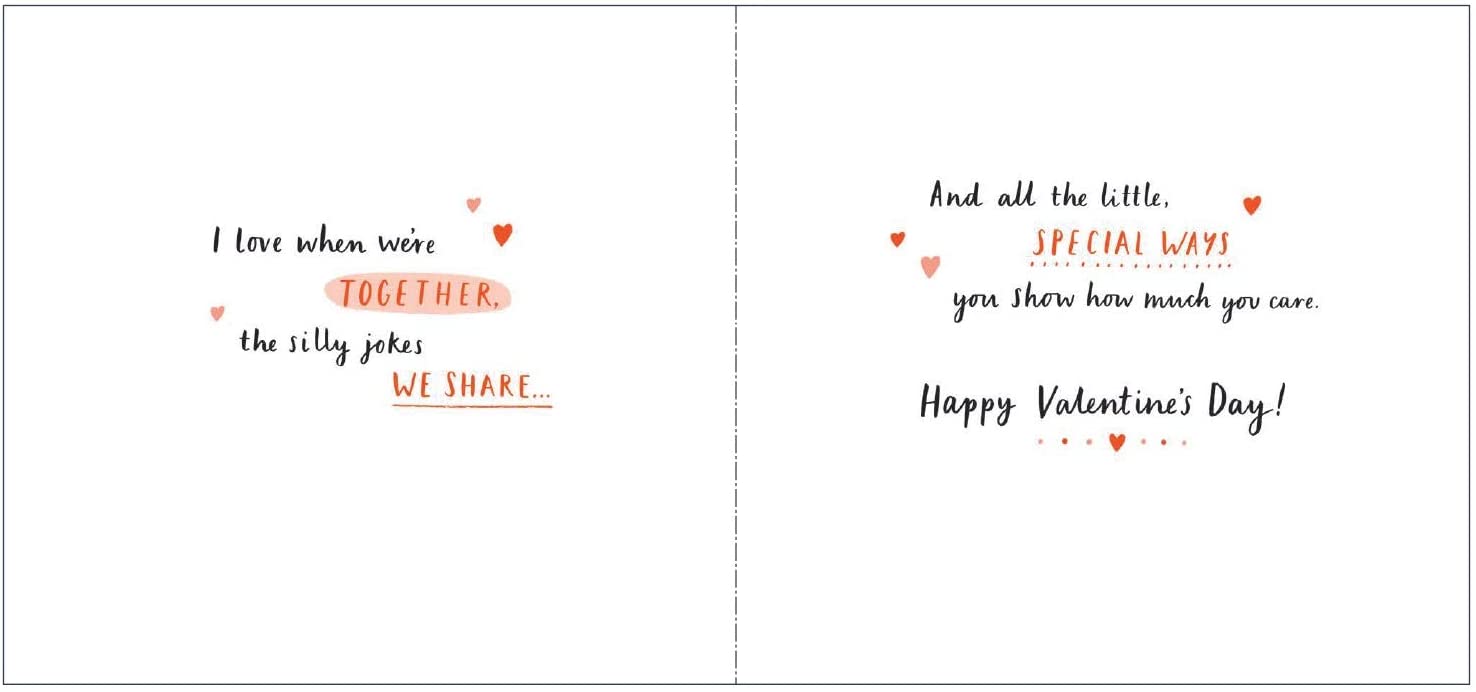 I love when we're
TOGETHER,
the silly jokes
WE SHARE...
And all the little,
SPECIAL WAYS
you show how much you care.
Happy Valentine's Day!